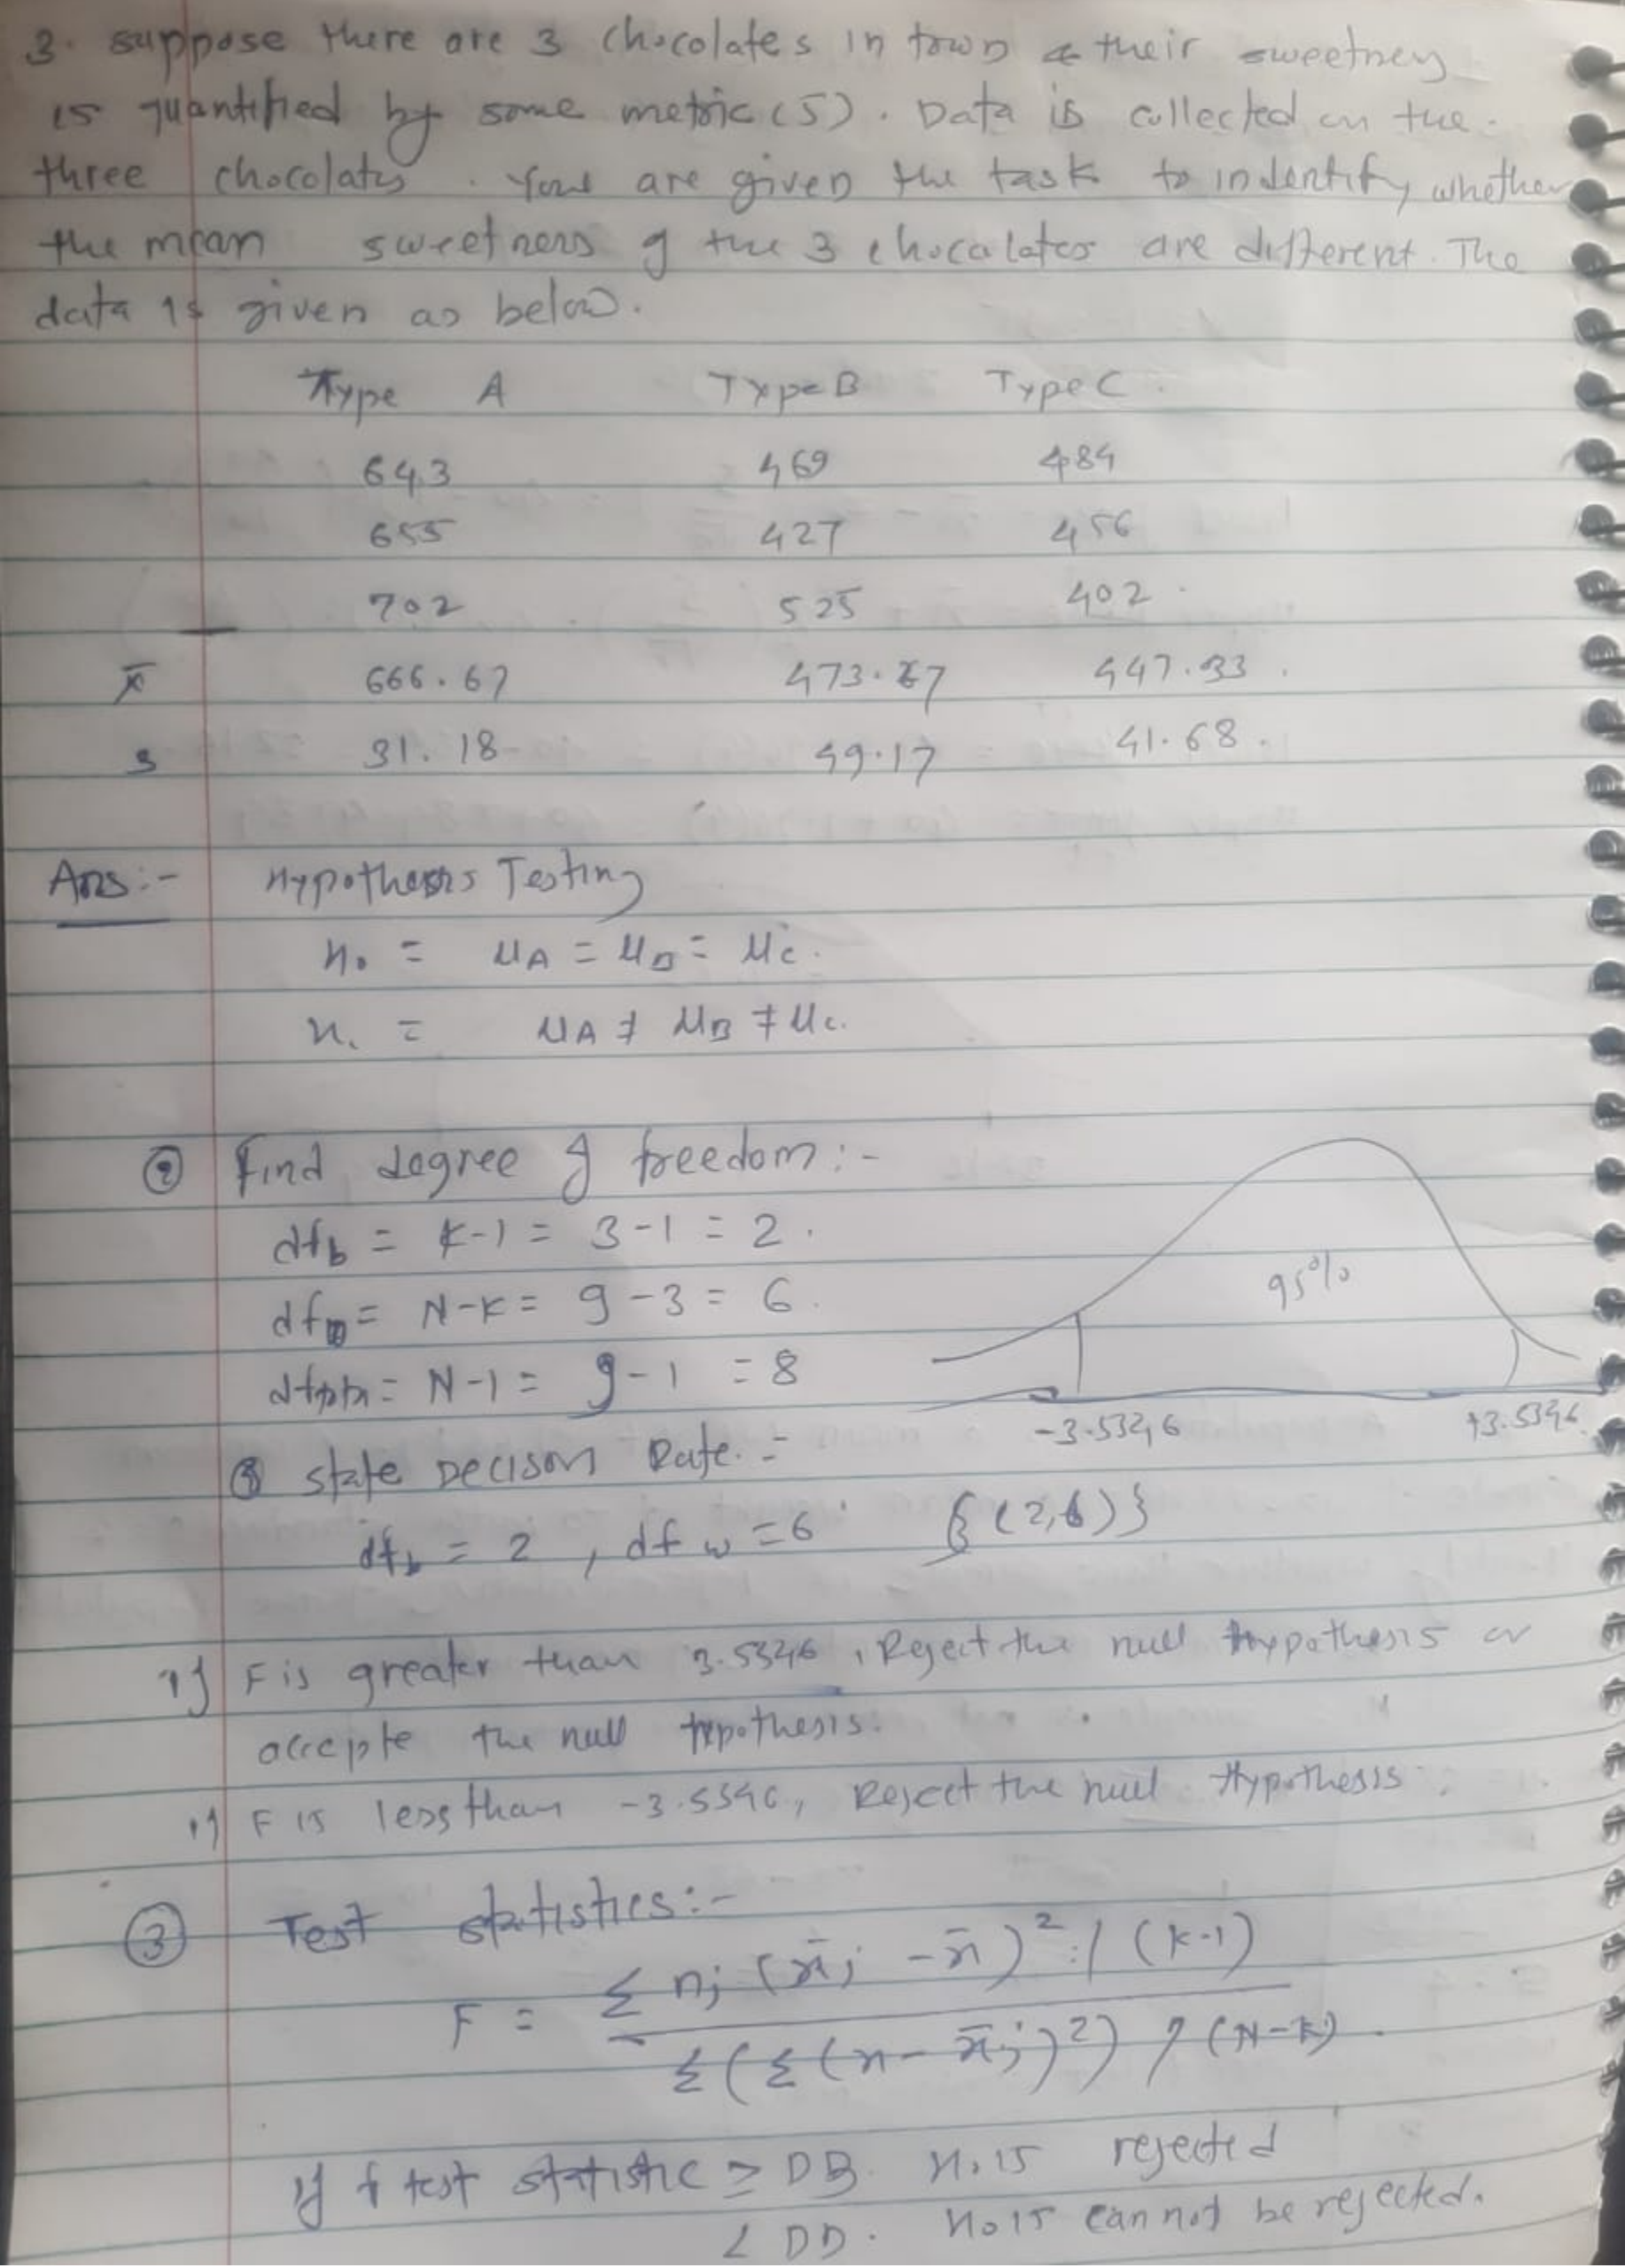 3. suppose there are 3 chocolates in town & their sweetney
is quantified by some metric (S). Data is collected on the.
three chocolaty. You are given the task to indentify whether
the mean sweetness of the 3 chocalates are different. The
data is given as below.
Type A Type B Type C.
643 469 484
655 427 456
702 525 402
x̄ 666.67 473.67 447.33
s 31.18 49.17 41.68.
Ans:- Hypothesis Testing
H₀ = μA = μB = μc.
H₁ = μA ≠ μB ≠ μc.
② Find degree of freedom:-
dfb = K-1 = 3-1 = 2.
dfw = N-K = 9-3 = 6.
N-1 = 9-1 = 8
95%
-3.5346 +3.5346
③ state Decison Rate. =
dfb = 2, dfw = 6 {(2,6)}
If F is greater than 3.5346, Reject the null Hypothesis or
accepte the null hypothesis.
If F is less than -3.5546, Reject the null Hypothesis.
③ Test statistics:-
F = Σ nj (x̄j - x̄)² / (K-1)
Σ(Σ(x-x̄j)²) / (N-K).
If f test statistic ≥ DB. H₀ is rejected
< DD. H₀ is can not be rejected.